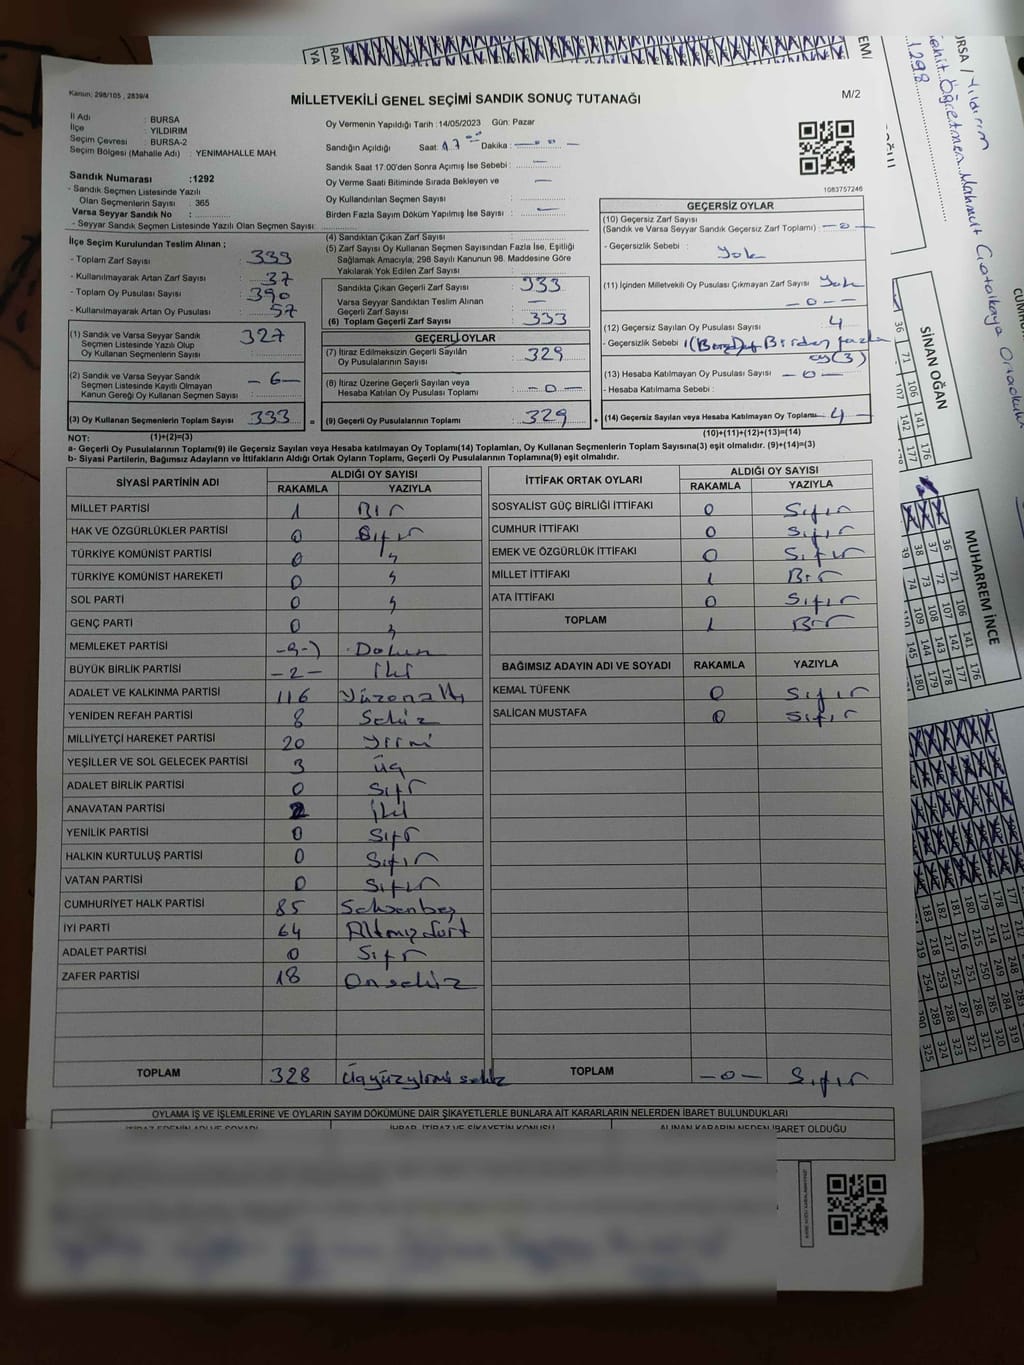 Kanun; 298/105 , 2839/4
MİLLETVEKİLİ GENEL SEÇİMİ SANDIK SONUÇ TUTANAĞI
M/2
İl Adı : BURSA
İlçe : YILDIRIM
Seçim Çevresi : BURSA-2
Seçim Bölgesi (Mahalle Adı) : YENİMAHALLE MAH.
Sandık Numarası :1292
- Sandık Seçmen Listesinde Yazılı
Olan Seçmenlerin Sayısı : 365
Varsa Seyyar Sandık No :
- Seyyar Sandık Seçmen Listesinde Yazılı Olan Seçmen Sayısı:
Oy Vermenin Yapıldığı Tarih :14/05/2023 Gün: Pazar
Sandığın Açıldığı Saat: 17 00 Dakika : -00-
Sandık Saat 17:00'den Sonra Açılmış İse Sebebi : —
Oy Verme Saati Bitiminde Sırada Bekleyen ve
Oy Kullandırılan Seçmen Sayısı : —
Birden Fazla Sayım Döküm Yapılmış İse Sayısı : —
1083757246
İlçe Seçim Kurulundan Teslim Alınan ;
- Toplam Zarf Sayısı : 339
- Kullanılmayarak Artan Zarf Sayısı : 37
- Toplam Oy Pusulası Sayısı : 390
- Kullanılmayarak Artan Oy Pusulası : 57
(1) Sandık ve Varsa Seyyar Sandık
Seçmen Listesinde Yazılı Olup
Oy Kullanan Seçmenlerin Sayısı : 327
(2) Sandık ve Varsa Seyyar Sandık
Seçmen Listesinde Kayıtlı Olmayan
Kanun Gereği Oy Kullanan Seçmen Sayısı : -6-
(3) Oy Kullanan Seçmenlerin Toplam Sayısı : 333
(4) Sandıktan Çıkan Zarf Sayısı :
(5) Zarf Sayısı Oy Kullanan Seçmen Sayısından Fazla İse, Eşitliği
Sağlamak Amacıyla, 298 Sayılı Kanunun 98. Maddesine Göre
Yakılarak Yok Edilen Zarf Sayısı :
Sandıkta Çıkan Geçerli Zarf Sayısı : 333
Varsa Seyyar Sandıktan Teslim Alınan
Geçerli Zarf Sayısı : —
(6) Toplam Geçerli Zarf Sayısı : 333
GEÇERLİ OYLAR
(7) İtiraz Edilmeksizin Geçerli Sayılan
Oy Pusulalarının Sayısı : 329
(8) İtiraz Üzerine Geçerli Sayılan veya
Hesaba Katılan Oy Pusulası Toplamı : -0-
(9) Geçerli Oy Pusulalarının Toplamı : 329
GEÇERSİZ OYLAR
(10) Geçersiz Zarf Sayısı
(Sandık ve Varsa Seyyar Sandık Geçersiz Zarf Toplamı) : -0-
- Geçersizlik Sebebi : Yok
(11) İçinden Milletvekili Oy Pusulası Çıkmayan Zarf Sayısı : Yok
-0-
(12) Geçersiz Sayılan Oy Pusulası Sayısı : 4
- Geçersizlik Sebebi : Birden fazla
oy (3)
(13) Hesaba Katılmayan Oy Pusulası Sayısı : -0-
- Hesaba Katılmama Sebebi :
(14) Geçersiz Sayılan veya Hesaba Katılmayan Oy Toplamı : 4
(1)+(2)=(3)
(10)+(11)+(12)+(13)=(14)
NOT:
a- Geçerli Oy Pusulalarının Toplamı(9) ile Geçersiz Sayılan veya Hesaba katılmayan Oy Toplamı(14) Toplamları, Oy Kullanan Seçmenlerin Toplam Sayısına(3) eşit olmalıdır. (9)+(14)=(3)
b- Siyasi Partilerin, Bağımsız Adayların ve İttifakların Aldığı Ortak Oyların Toplamı, Geçerli Oy Pusulalarının Toplamına(9) eşit olmalıdır.
SİYASİ PARTİNİN ADI ALDIĞI OY SAYISI
RAKAMLA YAZIYLA
MİLLET PARTİSİ 1 Bir
HAK VE ÖZGÜRLÜKLER PARTİSİ 0 Sıfır
TÜRKİYE KOMÜNİST PARTİSİ 0 "
TÜRKİYE KOMÜNİST HAREKETİ 0 "
SOL PARTİ 0 "
GENÇ PARTİ 0 "
MEMLEKET PARTİSİ -9- Dokuz
BÜYÜK BİRLİK PARTİSİ -2- İki
ADALET VE KALKINMA PARTİSİ 116 Yüzonaltı
YENİDEN REFAH PARTİSİ 8 Sekiz
MİLLİYETÇİ HAREKET PARTİSİ 20 Yirmi
YEŞİLLER VE SOL GELECEK PARTİSİ 3 Üç
ADALET BİRLİK PARTİSİ 0 Sıfır
ANAVATAN PARTİSİ 2 İki
YENİLİK PARTİSİ 0 Sıfır
HALKIN KURTULUŞ PARTİSİ 0 Sıfır
VATAN PARTİSİ 0 Sıfır
CUMHURİYET HALK PARTİSİ 85 Seksenbeş
İYİ PARTİ 64 Altmışdört
ADALET PARTİSİ 0 Sıfır
ZAFER PARTİSİ 18 Onsekiz
TOPLAM 328 Üçyüzyirmi sekiz
İTTİFAK ORTAK OYLARI ALDIĞI OY SAYISI
RAKAMLA YAZIYLA
SOSYALİST GÜÇ BİRLİĞİ İTTİFAKI 0 Sıfır
CUMHUR İTTİFAKI 0 Sıfır
EMEK VE ÖZGÜRLÜK İTTİFAKI 0 Sıfır
MİLLET İTTİFAKI 1 Bir
ATA İTTİFAKI 0 Sıfır
TOPLAM 1 Bir
BAĞIMSIZ ADAYIN ADI VE SOYADI RAKAMLA YAZIYLA
KEMAL TÜFENK 0 Sıfır
SALİCAN MUSTAFA 0 Sıfır
TOPLAM -0- Sıfır
OYLAMA İŞ VE İŞLEMLERİNE VE OYLARIN SAYIM DÖKÜMÜNE DAİR ŞİKAYETLERLE BUNLARA AİT KARARLARIN NELERDEN İBARET BULUNDUKLARI
İHBAR, İTİRAZ VE ŞİKAYETİN KONUSU
ALINAN KARARIN NEDEN İBARET OLDUĞU
SİNAN OĞAN
MUHARREM İNCE